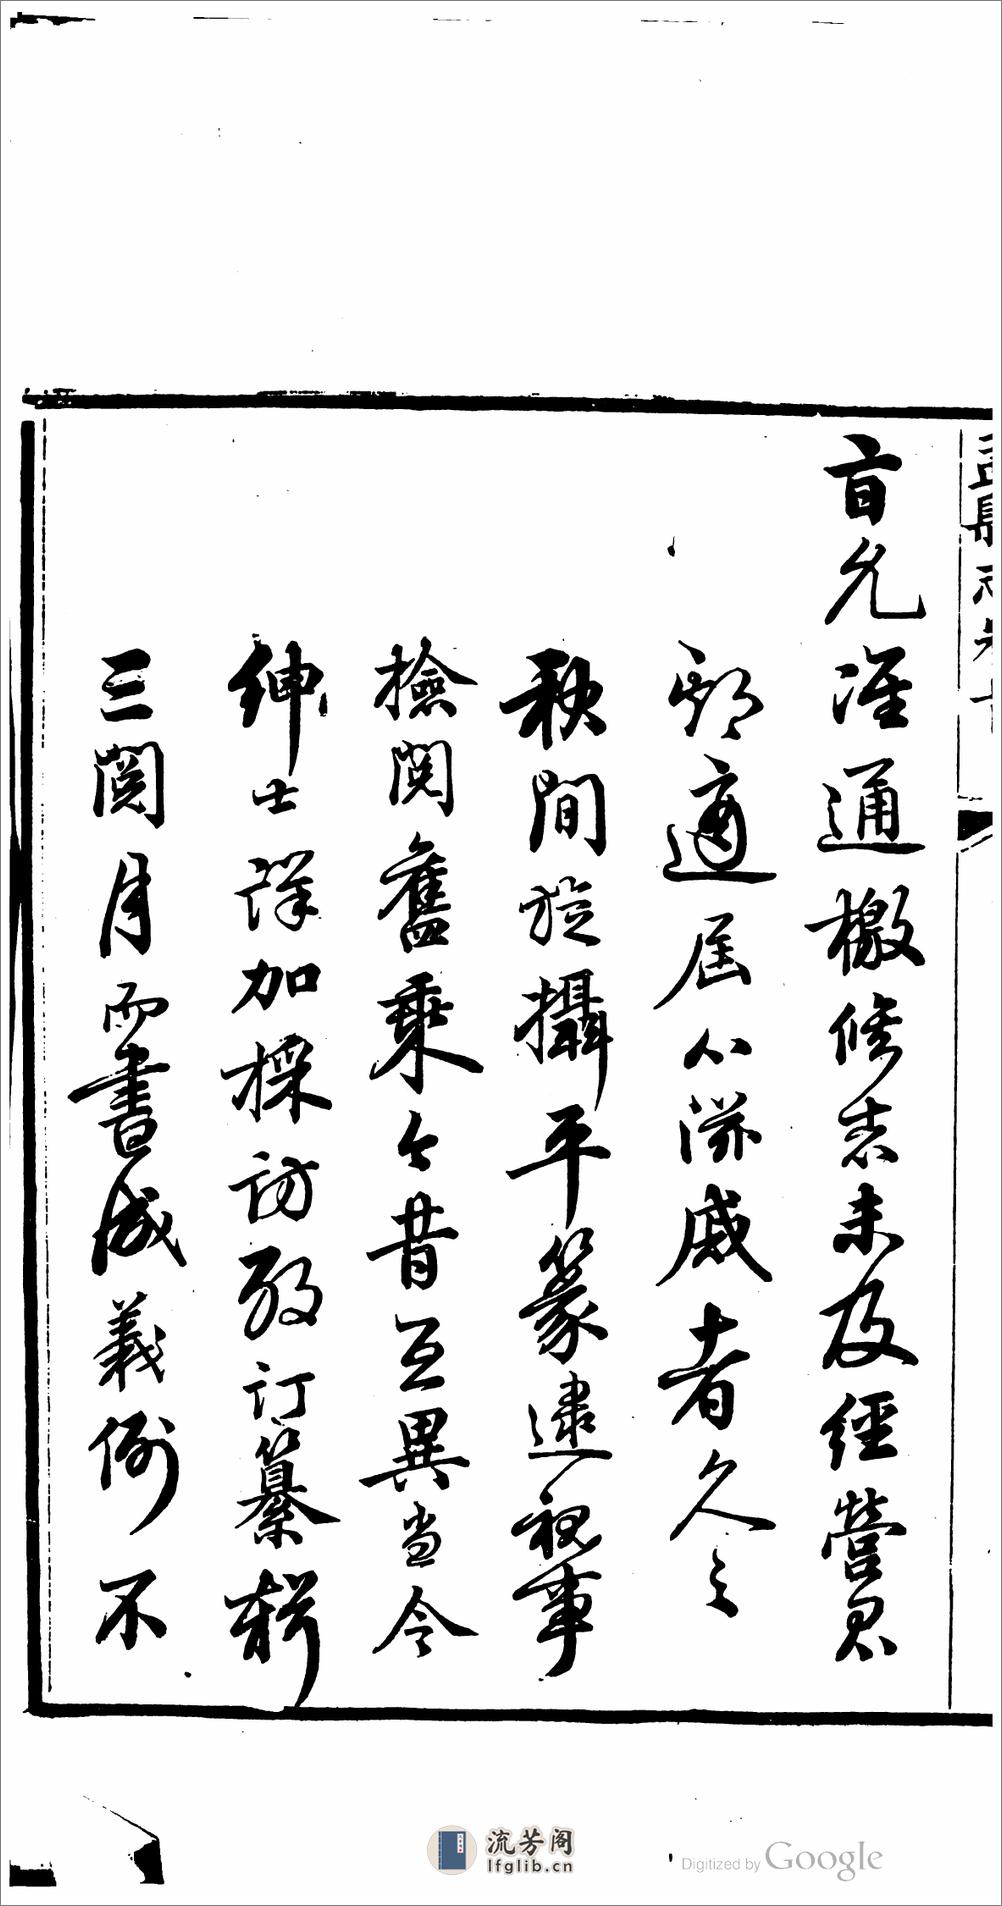 旨允准通檄修志未及經營
適屆心滋戚者久之
秋間旋攝平篆逮視事
撿閱舊乘今昔互異當令
紳士詳加採訪攷訂纂輯
三閱月而書成義例不
流芳阁
lfglib.cn
Digitized by Google